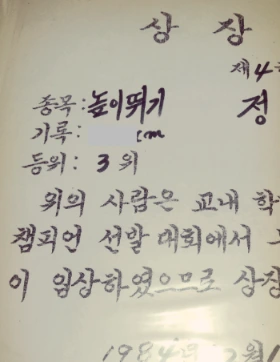 상 장
제4
종목:높이뛰기 정
기록: cm
등위: 3 위
위의 사람은 교내 학
챔피언 선발 대회에서
이 입상하였으므로 상장
1984년 월